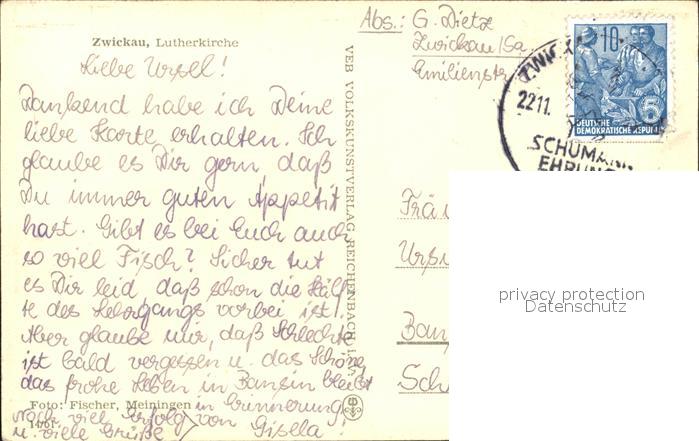 Zwickau, Lutherkirche
Liebe Ursel!
Dankend habe ich Deine
liebe Karte erhalten. Ich
glaube es Dir gern, daß
Du immer guten Appetit
hast. Gibt es bei Euch auch
so viel Fisch? Sicher tut
es Dir leid, daß schon die Hälf-
te des Lehrgangs vorbei ist!
Aber glaube mir, daß Schlechte
ist bald vergessen u. das Schöne,
das frohe Leben in Bansin bleibt
in Erinnerung!
Noch viel Erfolg
u. viele Grüße von Gisela!
Foto: Fischer, Meiningen
VEB VOLKSKUNSTVERLAG REICHENBACH I. V.
Abs.: G. Dietz
Zwickau/Sa.
Emilienstr.
10
5
DEUTSCHE
DEMOKRATISCHE REPUBLIK
22.11.
SCHUMANN
EHRUNG
Fräu
Ursu
Ban
Sch
privacy protection
Datenschutz